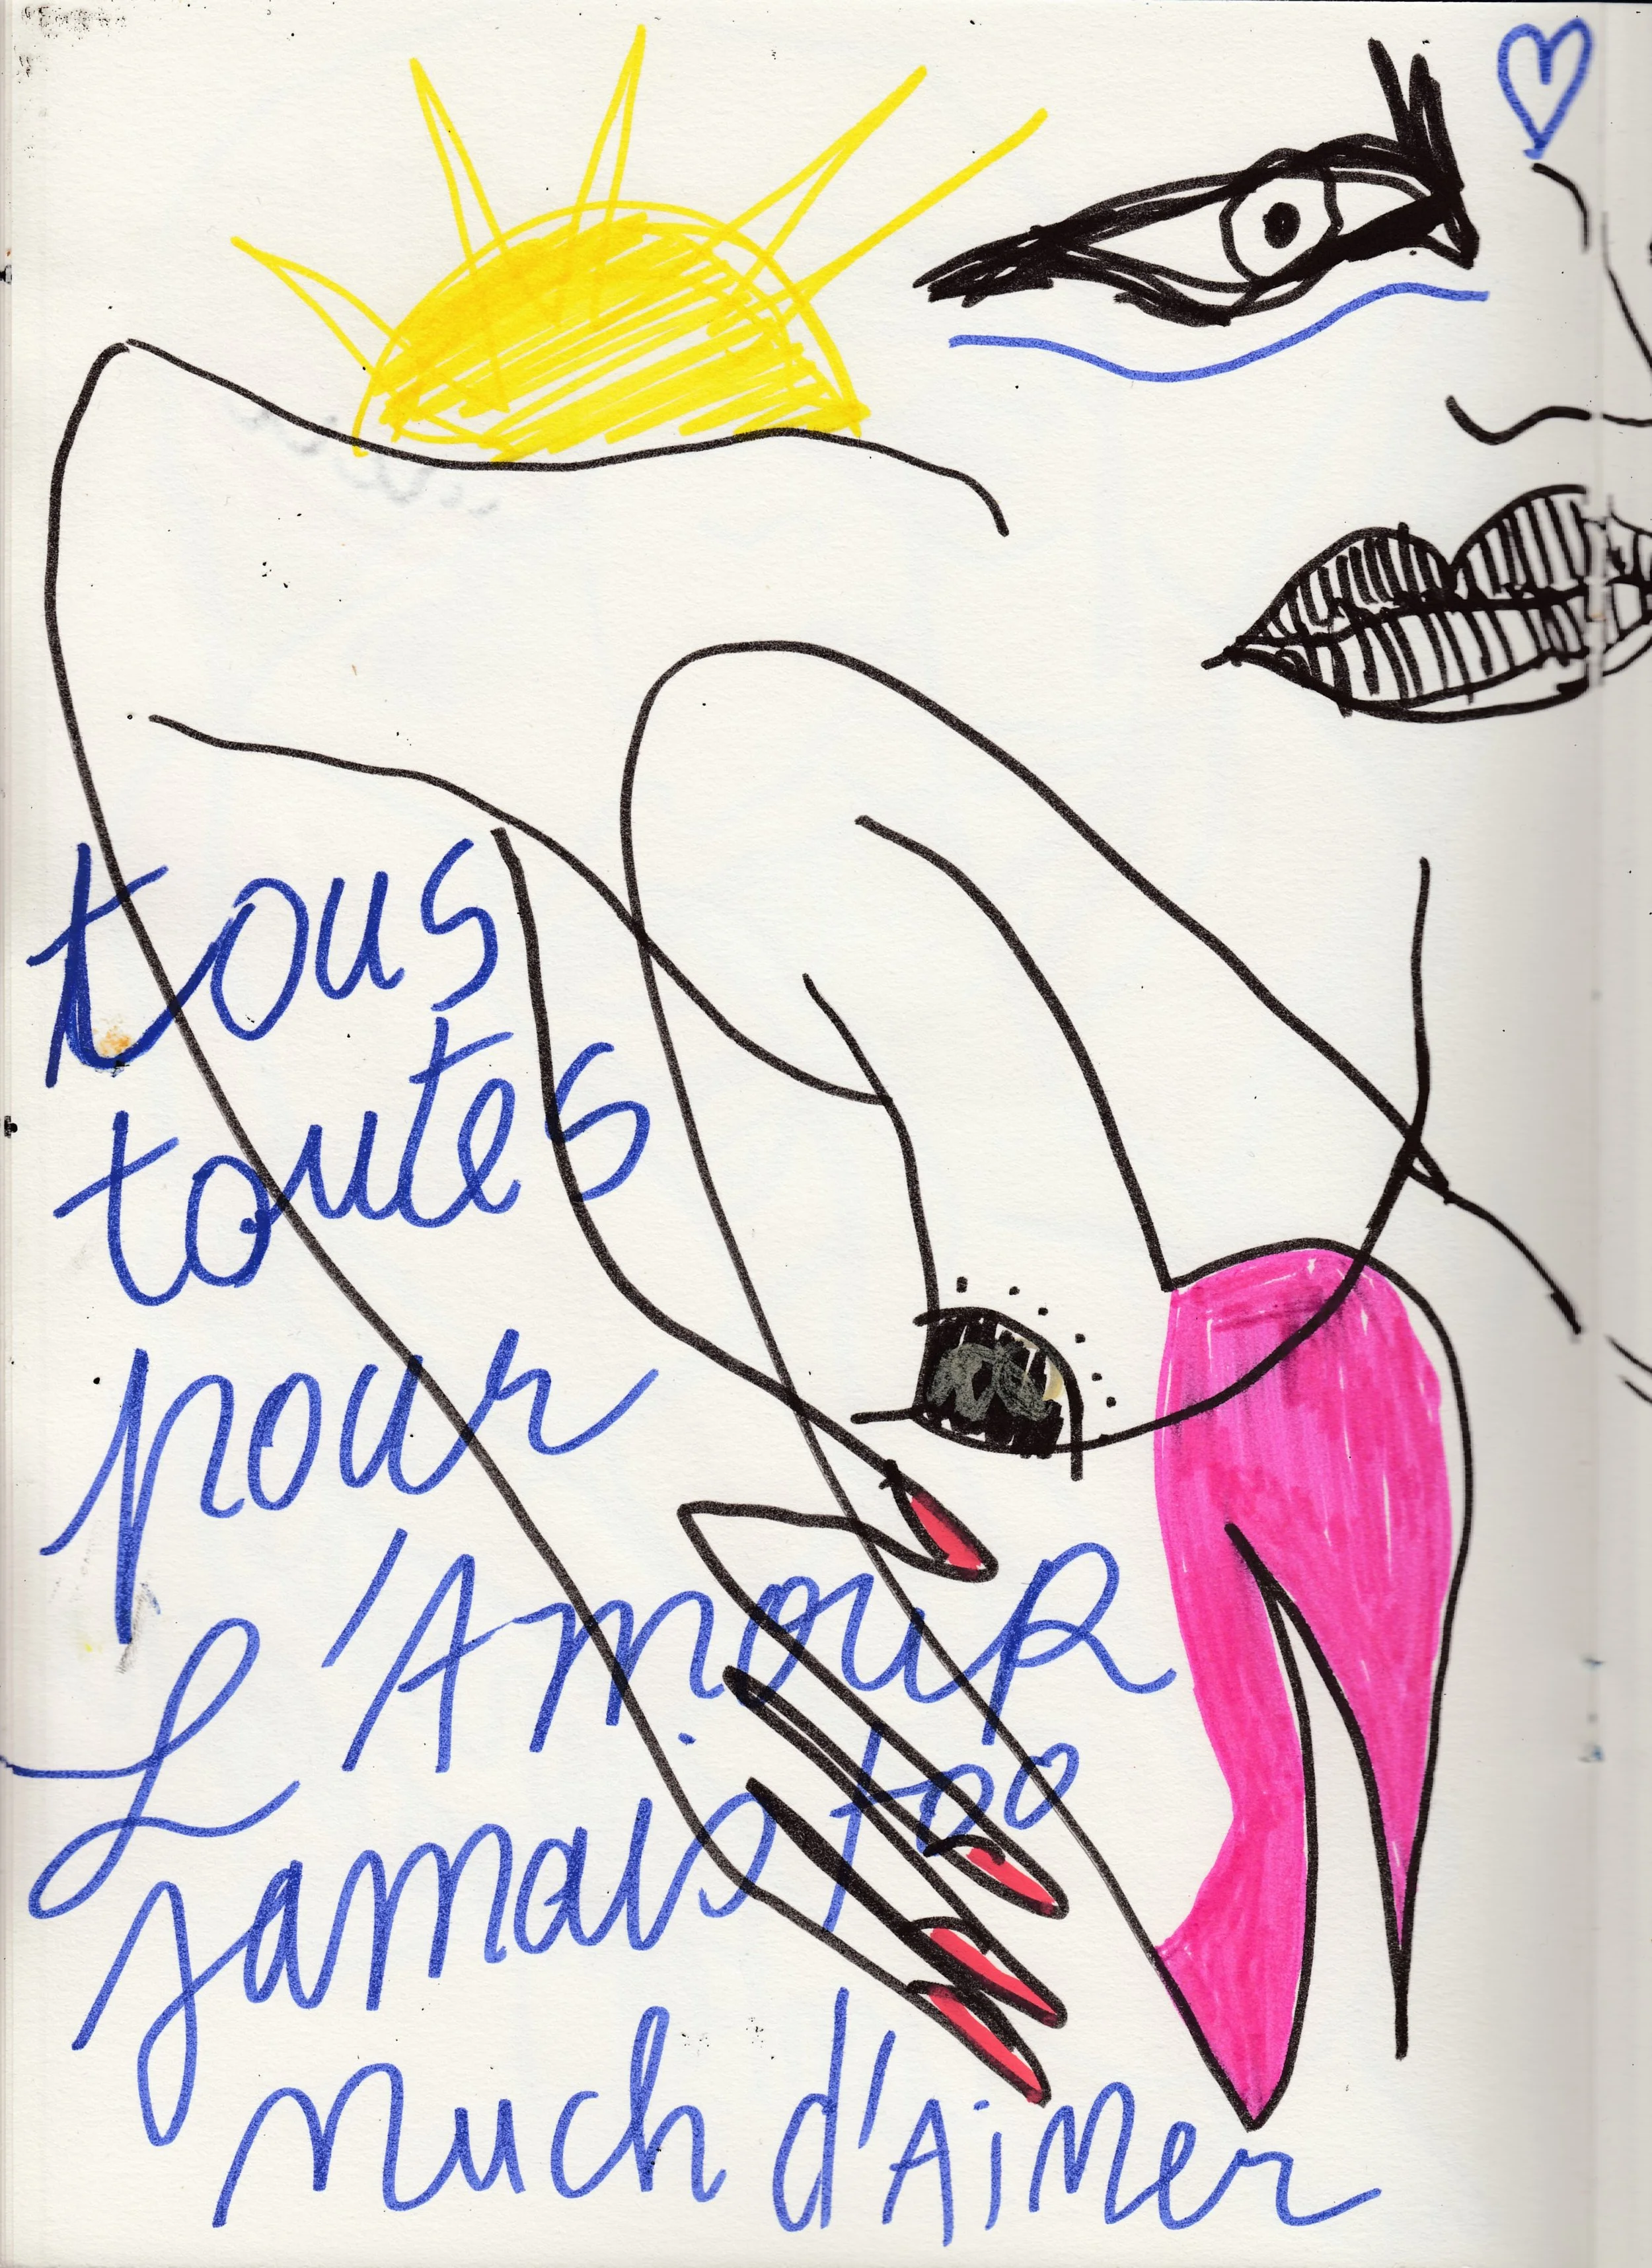 tous
toutes
pour
L'AmouR
jamais too
much d'AiMer